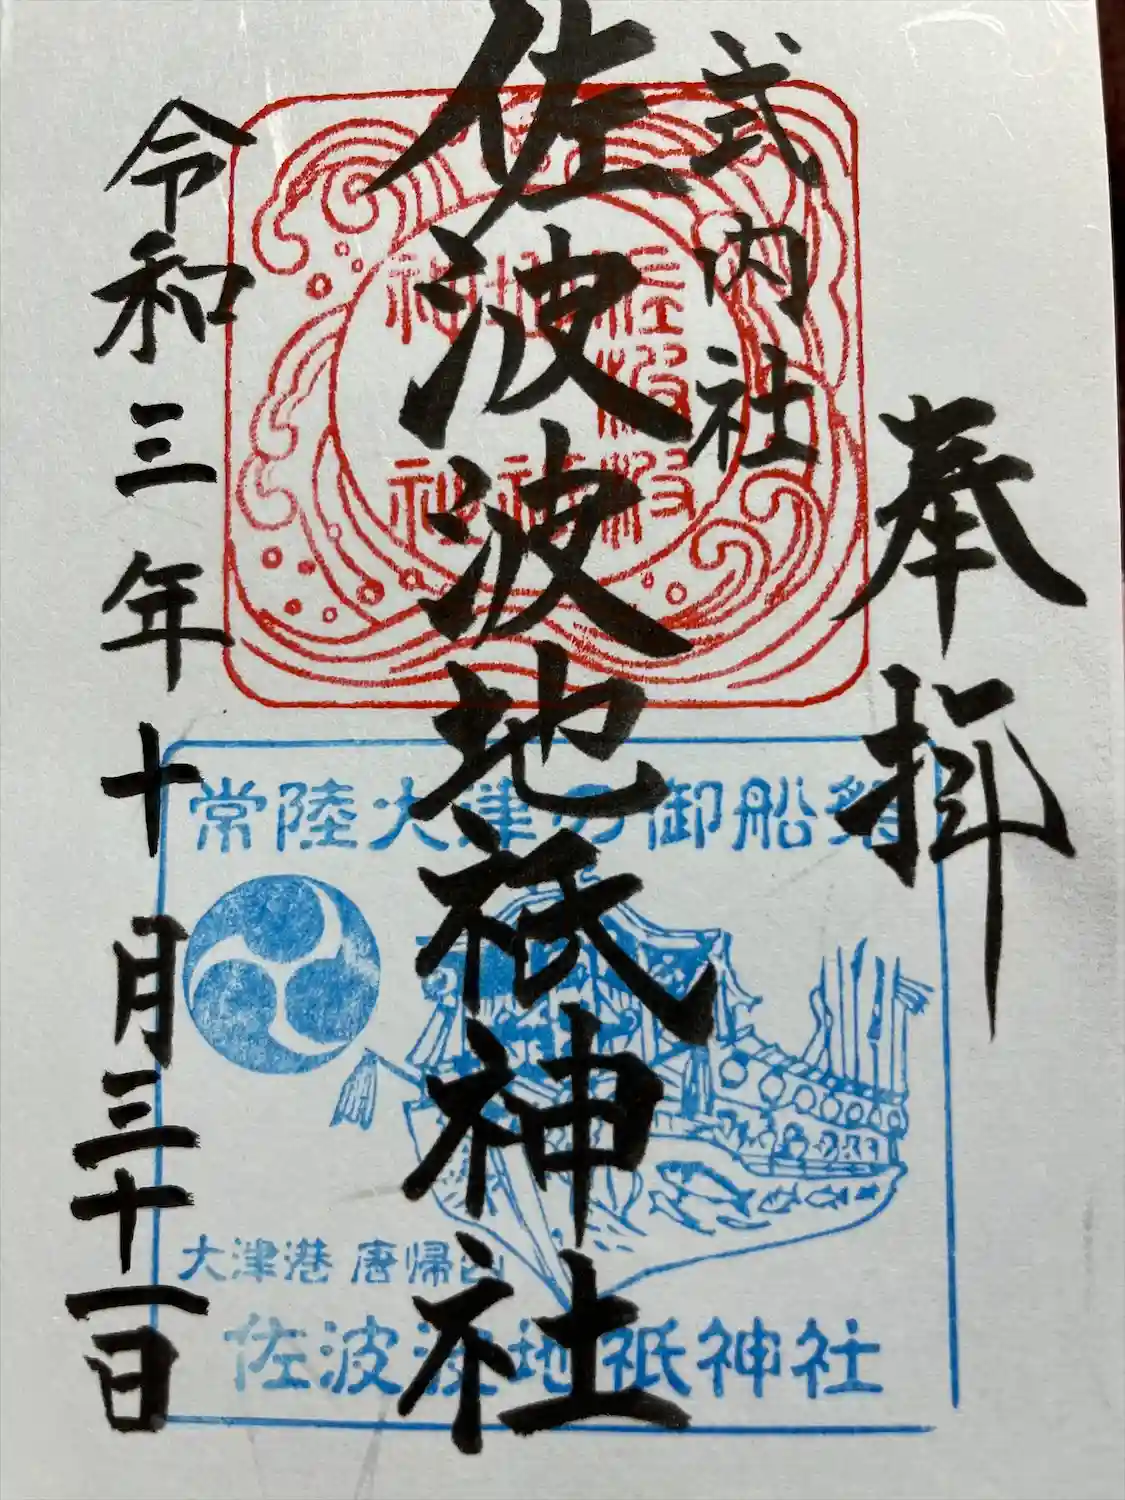 奉拝
式内社
佐波波地祇神社
令和三年十月三十一日
佐波波
地祇神社
常陸大津の御船祭
大津港 唐帰山
佐波波地祇神社